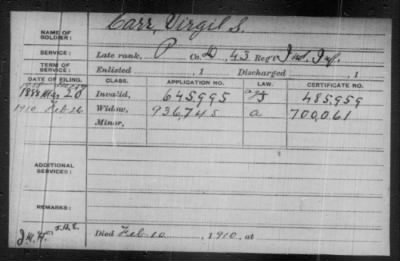 Carr, Virgil S.
NAME OF SOLDIER:
SERVICE: Late rank, P Co. D, 43 Reg't Ind. Inf.
TERM OF SERVICE: Enlisted , 1 Discharged , 1
DATE OF FILING. CLASS. APPLICATION NO. LAW. CERTIFICATE NO.
1888 Mar 20 Invalid, 645,995 485,959
1910 Feb 26 Widow, 936,745 a 700,061
Minor,
ADDITIONAL SERVICES:
REMARKS:
Died Feb 10 1910, at